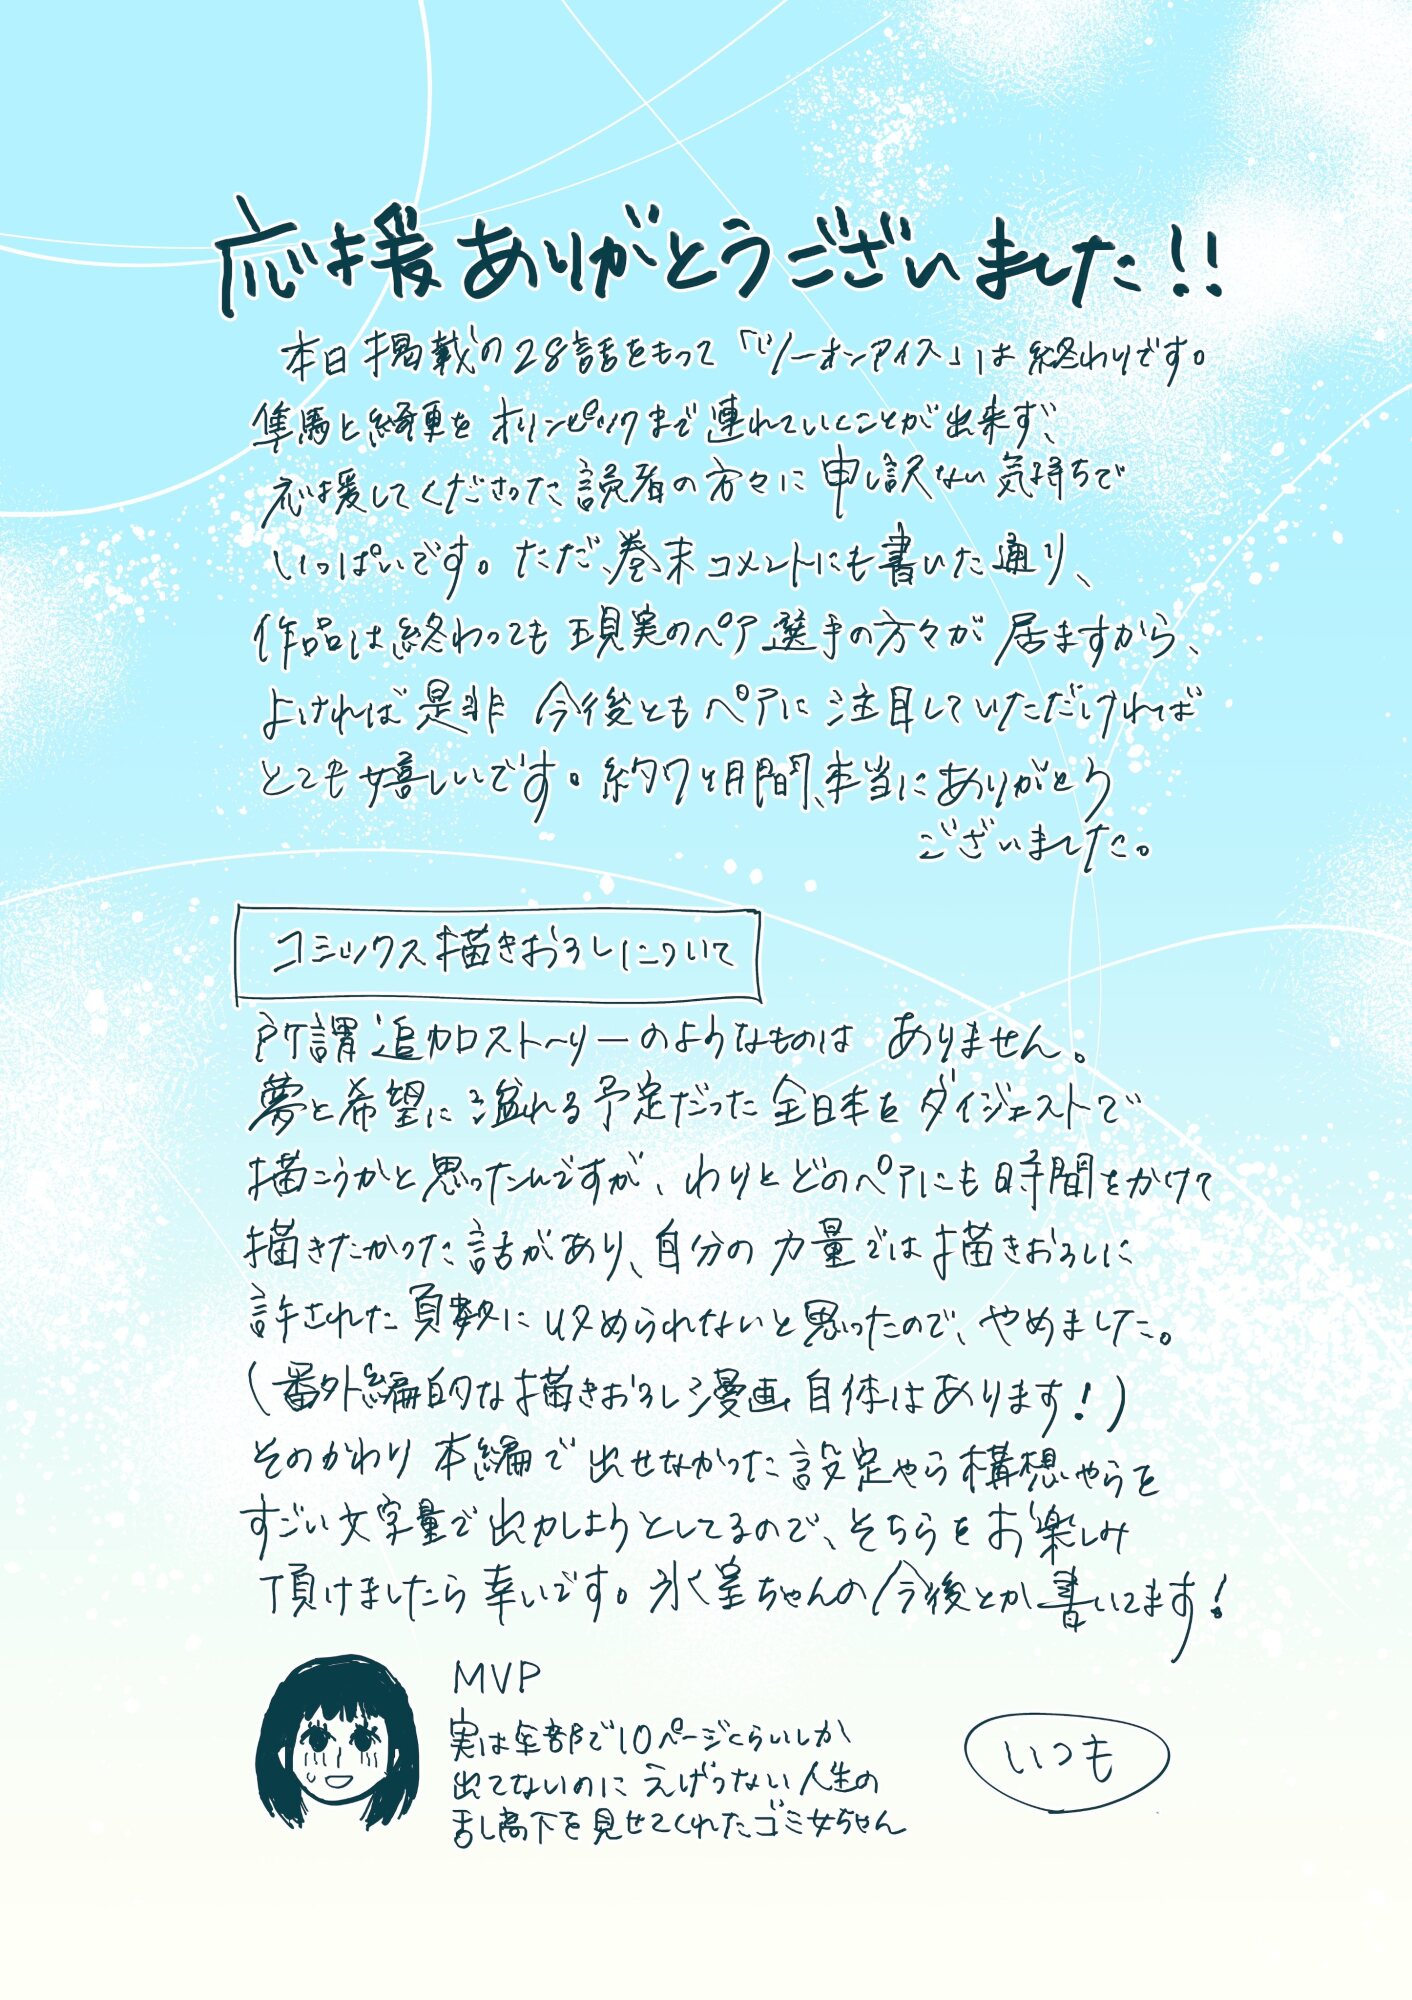 応援ありがとうございました!!
本日掲載の28話をもって「ツーオンアイス」は終わりです。
隼馬と綺更をオリンピックまで連れていくことが出来ず、
応援してくださった読者の方々に申し訳ない気持ちで
いっぱいです。ただ、巻末コメントにも書いた通り、
作品は終わっても現実のペア選手の方々が居ますから、
よければ是非 今後ともペアに注目していただければ
とても嬉しいです。約7ヶ月間、本当にありがとう
ございました。
コミックス描きおろしについて
所謂追加ストーリーのようなものは ありません。
夢と希望に溢れる予定だった全日本をダイジェストで
描こうかと思ったんですが、わりとどのペアにも時間をかけて
描きたかった話があり、自分の力量では描きおろしに
許された頁数に収められないと思ったので、やめました。
(番外編的な描きおろし漫画自体はあります!)
そのかわり本編で出せなかった設定やら構想やらを
すごい文字量で出力しようとしてるので、そちらをお楽しみ
頂けましたら幸いです。氷室ちゃんの今後とか書いてます!
MVP
実は全部で10ページくらいしか
出てないのに えげつない人生の
乱高下を見せてくれたゴミ女ちゃん
いつも